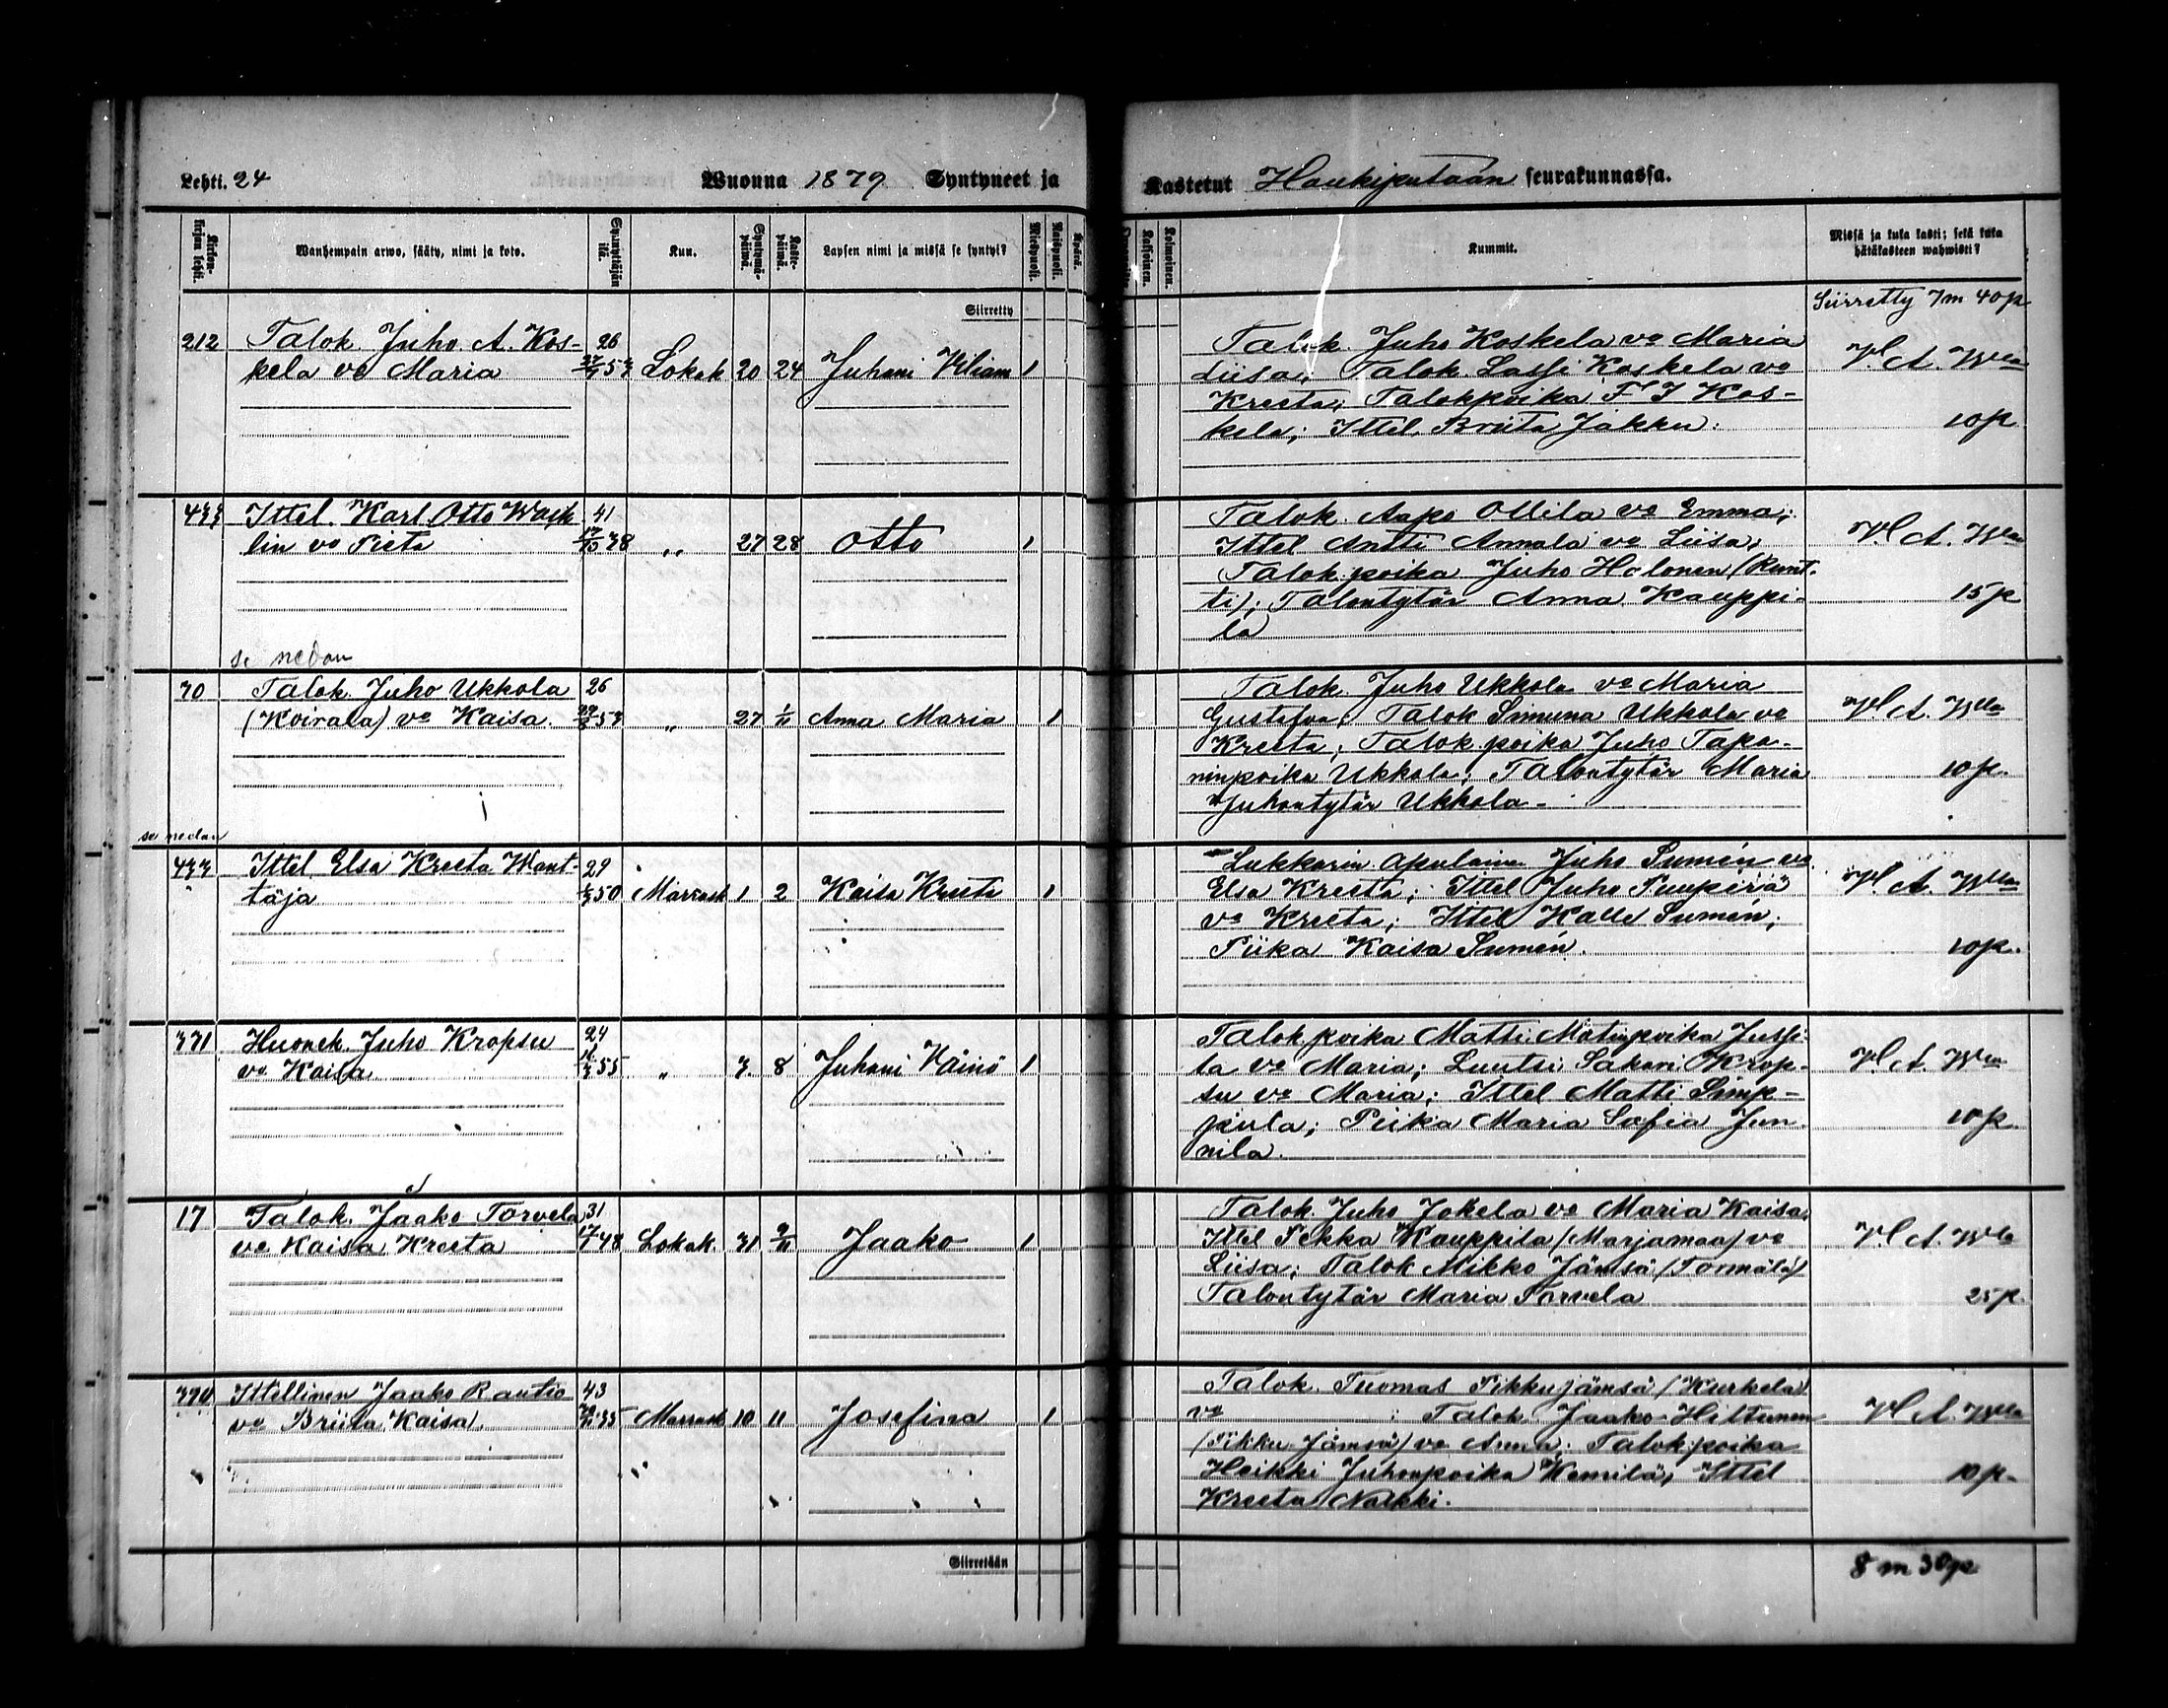 Lehti. 24 Wuonna 1879 Syntyneet ja
Kastetut Haukiputaan seurakunnassa.
Kirkon-kirjan lehti.
Wanhempain arwo, sääty, nimi ja koto.
Synnyttäjän ikä.
Kuu.
Syntymä-päiwä.
Kaste-päiwä.
Lapsen nimi ja missä se syntyi?
Miespuoli.
Naispuoli.
Äpärä.
Kaksoinen.
Kolmoinen.
Kummit.
Missä ja kuka kasti; sekä kuka hätäkasteen wahwisti?
Siirretty
Siirretty 7m 40p
212 Talok. Juho. A. Kos- 26
kela vo Maria 53 Lokak 20 24 Juhani Viliam 1
Talok. Juho Koskela vo Maria
Liisa; Talok. Lassi Koskela vo
Kreeta; Talokpoika F I Kos-
kela; Ittel. Briita Jakku.
V. A. Wla
10p.
433 Ittel. Karl Otto Wack 41
lin vo 38 „ 27 28 Otto 1
Talok. Aapo Ollila vo Emma;
Ittel Antti Annala vo Liisa;
Talok.poika Juho Halonen (Runt-
ti); Talontytär Anna Kauppi-
la
V. A. Wla
15p
se nedan
30 Talok. Juho Ukkola 26
(Koirala) vo Kaisa. 53 „ 27 1/11 Anna Maria 1
Talok. Juho Ukkola vo Maria
Gustafva; Talok Simuna Ukkola vo
Kreeta; Talok.poika Juho Tapa-
ninpoika Ukkola; Talontytär Maria
Juhontytär Ukkola-
V. A. Wla
10p.
se nedan
433 Ittel Elsa Kreeta Want- 29
täjä 50 Marrask 1 2 Kaisa Kreeta 1
Lukkarin apulainen Juho Sumén vo
Elsa Kreeta; Ittel Juho Puuperä
vo Kreeta; Ittel Kalle Sumén;
Piika Kaisa Sumén.
V. A. Wla
10p.
331 Huonek. Juho Kropsu 24
vo Kaisa 55 „ 3. 8 Juhani Väinö 1
Talok.poika Matti Matinpoika Jussi-
la vo Maria; Luutsi Sakari Krop-
su vo Maria; Ittel Matti Simp-
pula; Piika Maria Sofia Jun-
nila.
V. A. Wla
10p.
17 Talok. Jaako Torvela 31
vo Kaisa Kreeta 17/7 48 Lokak. 31 9/11 Jaako 1
Talok. Juho Jokela vo Maria Kaisa;
Ittel Pekka Kauppila (Marjamaa) vo
Liisa; Talok Mikko Jämsä (Törmälä)
Talontytär Maria Torvela
V. A. Wla
25p.
370 Ittellinen Jaako Rautio 43
vo Briita Kaisa. 35 Marrask 10 11 Josefina 1
Talok. Tuomas Pikkujämsä (Kurkela)
vo ; Talok. Jaako Hiltunen
(Pikku Jämsä) vo Anna; Talok.poika
Heikki Juhonpoika Kemilä; Ittel
Kreeta Nalkki.
V. A. Wla
10p.
Siirretään
8 m 30p